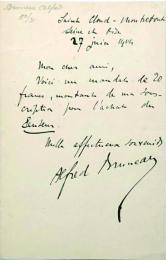 Bruneau Alfred
Saint Cloud - Montretout
Seine et Oise
27 juin 1914
Mon cher ami,
Voici un mandat de 20
francs, montant de ma sous-
cription pour l'achat du
Penseur.
Mille affectueux souvenirs
Alfred Bruneau